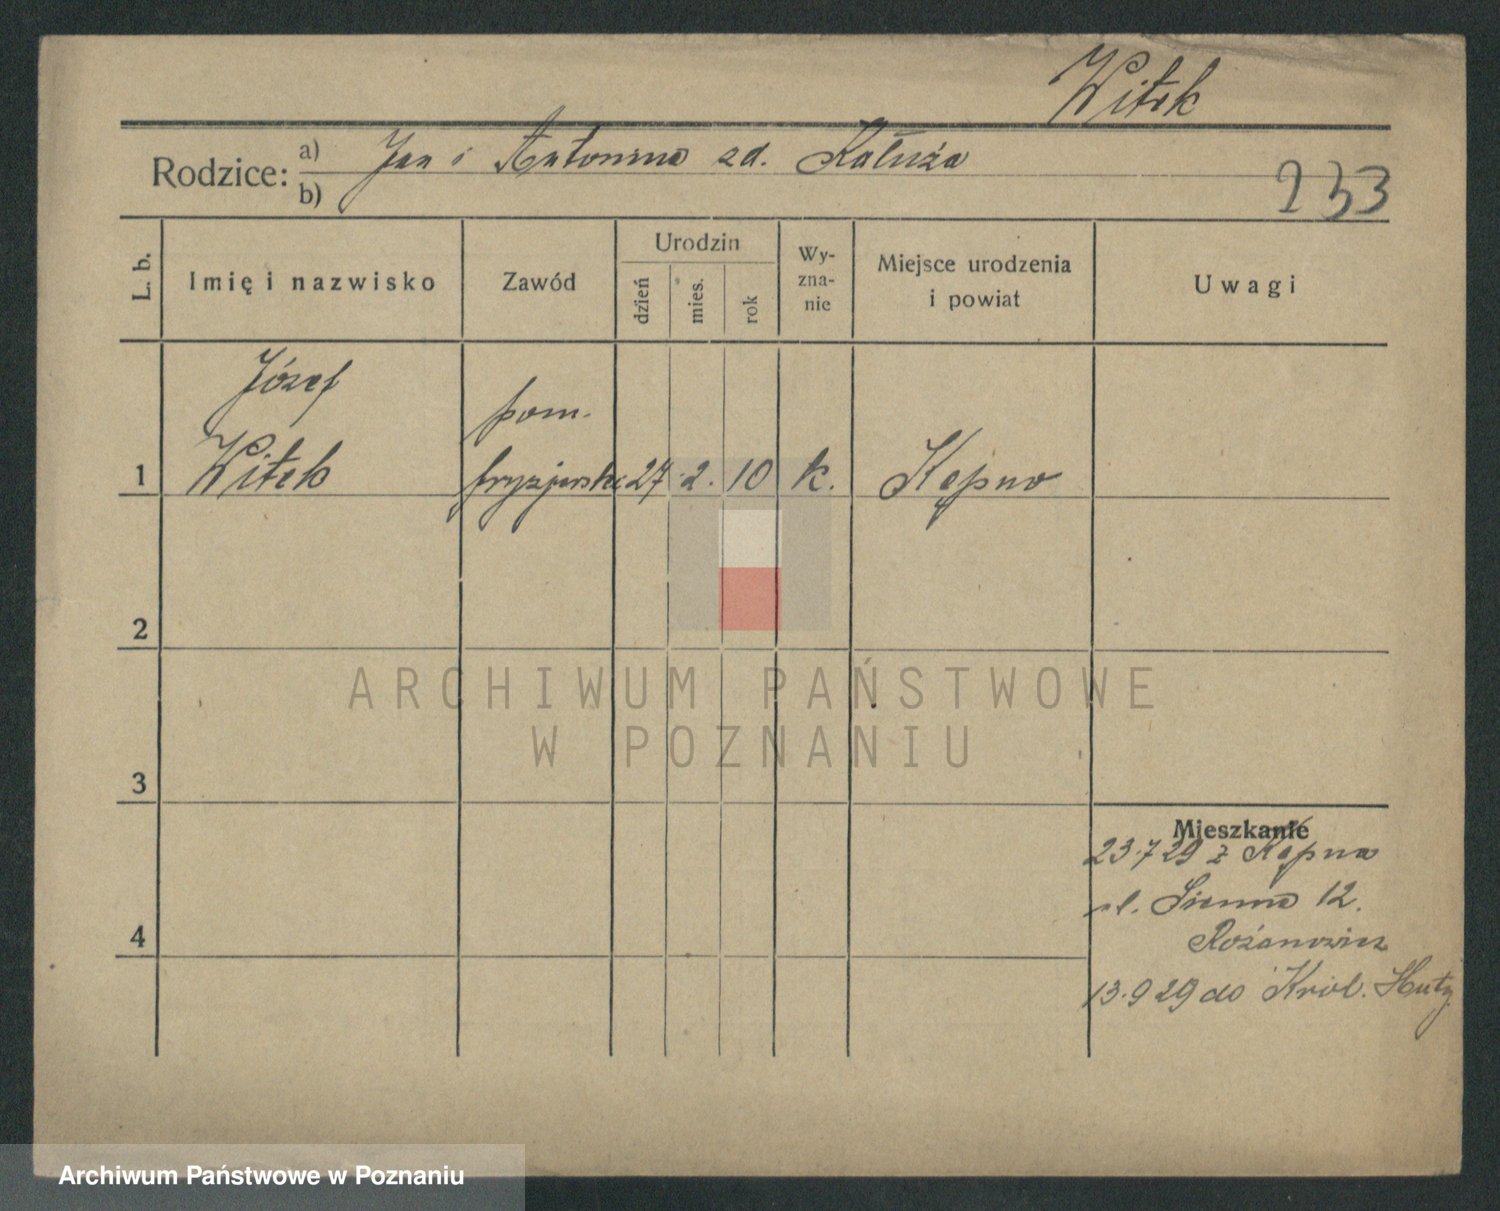 Witek
Rodzice: a) Jan i Antonina zd. Kałuża
b)
233
L. b.
Imię i nazwisko
Zawód
Urodzin
dzień
mies.
rok
Wy-
zna-
nie
Miejsce urodzenia
i powiat
Uwagi
Józef
pom.
1 Witek fryzjerski 27 2. 10 k. Kępno
2
ARCHIWUM PAŃSTWOWE
W POZNANIU
3
Mieszkanie
23.7 29 z Kępna
ul. Sienna 12.
Rożanowicz
4
13.9 29 do Król. Huty
Archiwum Państwowe w Poznaniu